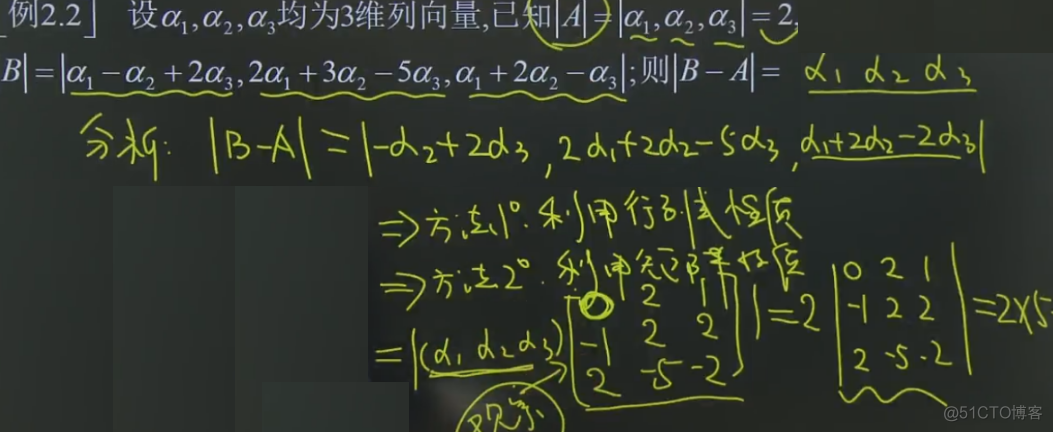 [例2.2] 设α₁,α₂,α₃均为3维列向量,已知|A|=|α₁,α₂,α₃|=2,
B|=|α₁-α₂+2α₃,2α₁+3α₂-5α₃,α₁+2α₂-α₃|;则|B-A|= α₁ α₂ α₃
分析: |B-A|=|-α₂+2α₃,2α₁+2α₂-5α₃,α₁+2α₂-2α₃|
⇒方法1°.利用行列式性质
⇒方法2°.利用矩阵
=|(α₁ α₂ α₃)[0 2 1
-1 2 2
2 -5 -2]|=2|0 2 1
-1 2 2
2 -5 -2|=2×5
观察
@51CTO博客